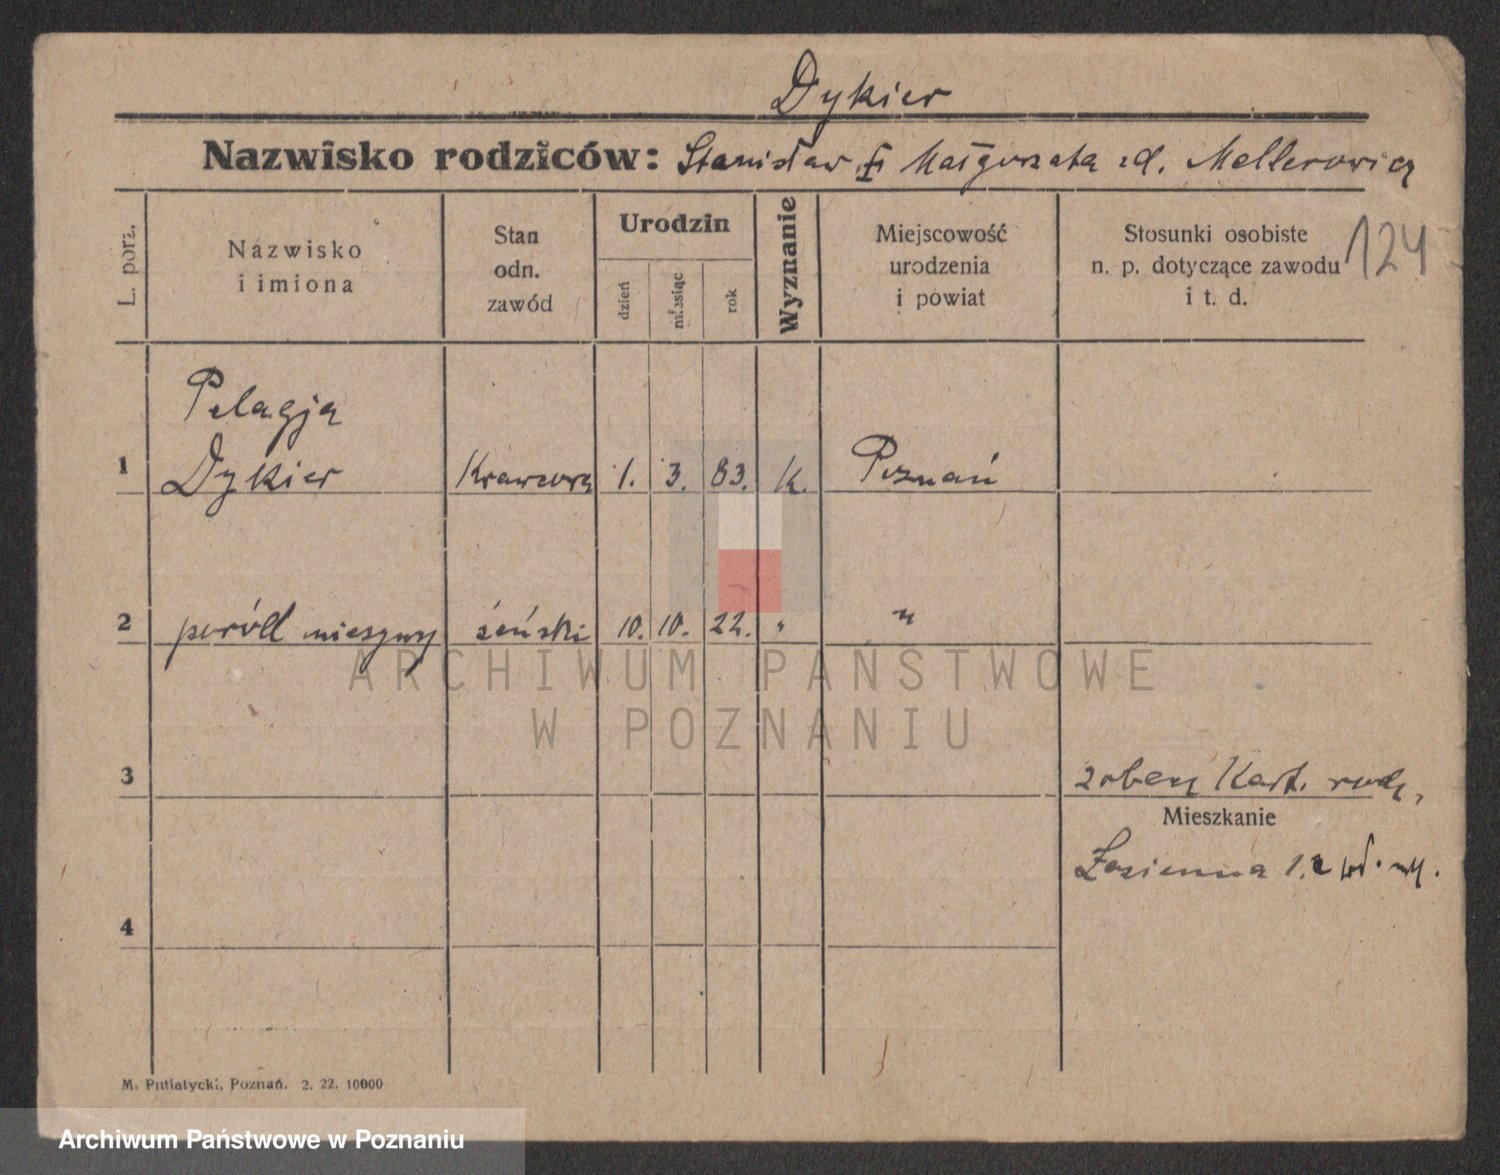 Dykier
Nazwisko rodziców: Stanisław i Małgorzata zd. Mellerowicz
L. porz.
Nazwisko
i imiona
Stan
odn.
zawód
Urodzin
dzień
miesiąc
rok
Wyznanie
Miejscowość
urodzenia
i powiat
Stosunki osobiste
n. p. dotyczące zawodu
i t. d.
124
Pelagja
1 Dykier Krawcowa 1. 3. 83. K. Poznań
2 poród nieżywy żeński 10. 10. 22. " "
ARCHIWUM PAŃSTWOWE
W POZNANIU
3 Kart. rodz.
Mieszkanie
1.
4
M. Putiatycki, Poznań. 2. 22. 10000
Archiwum Państwowe w Poznaniu